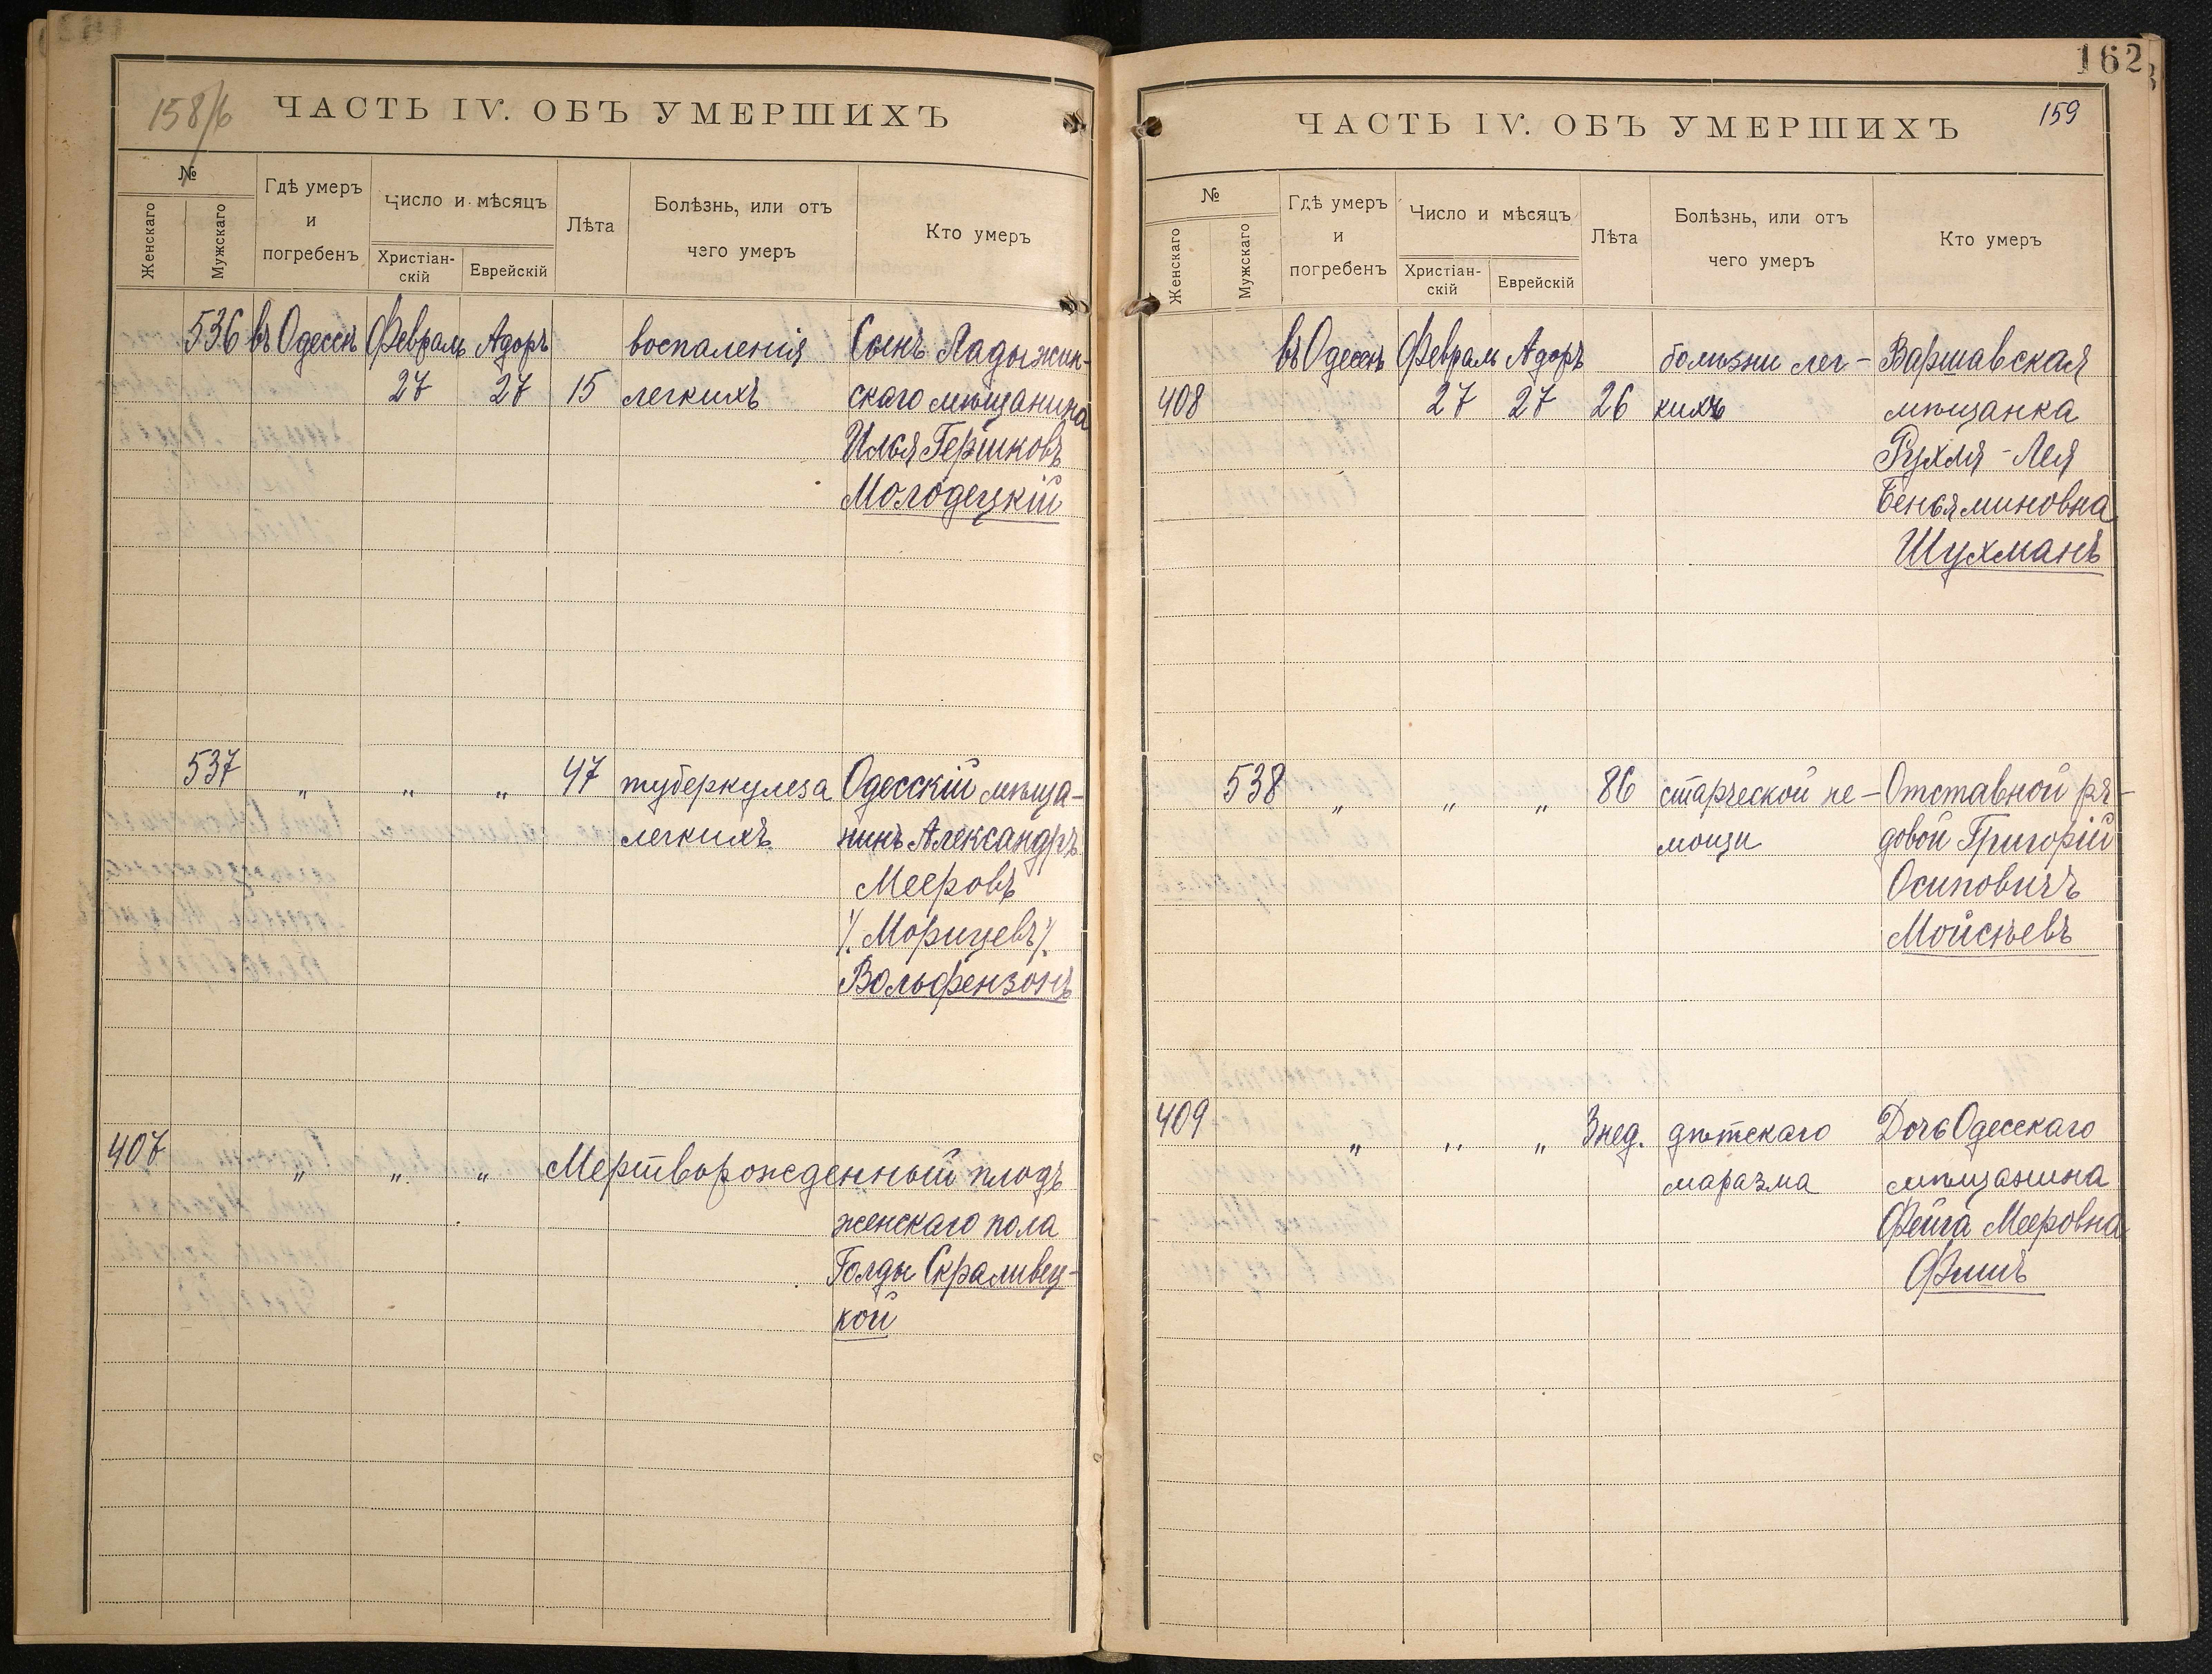 158/б
ЧАСТЬ IV. ОБЪ УМЕРШИХЪ
№
Женскаго
Мужскаго
Гдѣ умеръ
и
погребенъ
Число и мѣсяцъ
Христіан-
скій
Еврейскій
Лѣта
Болѣзнь, или отъ
чего умеръ
Кто умеръ
536 въ Одессѣ Февраль Адоръ воспаленія Сынъ Ладыжин-
27 27 15 легкихъ скаго мѣщанина
Илья Гершковъ
Молодецкій
537 " " " 47 туберкулеза Одесскій мѣща-
легкихъ нинъ Александръ
Мееровъ
/Морицевъ/
Вольфензонъ
407 " " " Мертворожденный плодъ
женскаго пола
Голды Скраливец-
кой
162
159
ЧАСТЬ IV. ОБЪ УМЕРШИХЪ
№
Женскаго
Мужскаго
Гдѣ умеръ
и
погребенъ
Число и мѣсяцъ
Христіан-
скій
Еврейскій
Лѣта
Болѣзнь, или отъ
чего умеръ
Кто умеръ
въ Одессѣ Февраль Адоръ болѣзни лег- Варшавская
408 27 27 26 кихъ мѣщанка
Рухля-Лея
Беньяминовна
Шухманъ
538 " " " 86 старческой не- Отставной ря-
мощи довой Григорій
Осиповичъ
Мойсѣевъ
409 " " " 3 нед. дѣтскаго Дочь Одесскаго
маразма мѣщанина
Фейга Мееровна
Фишъ